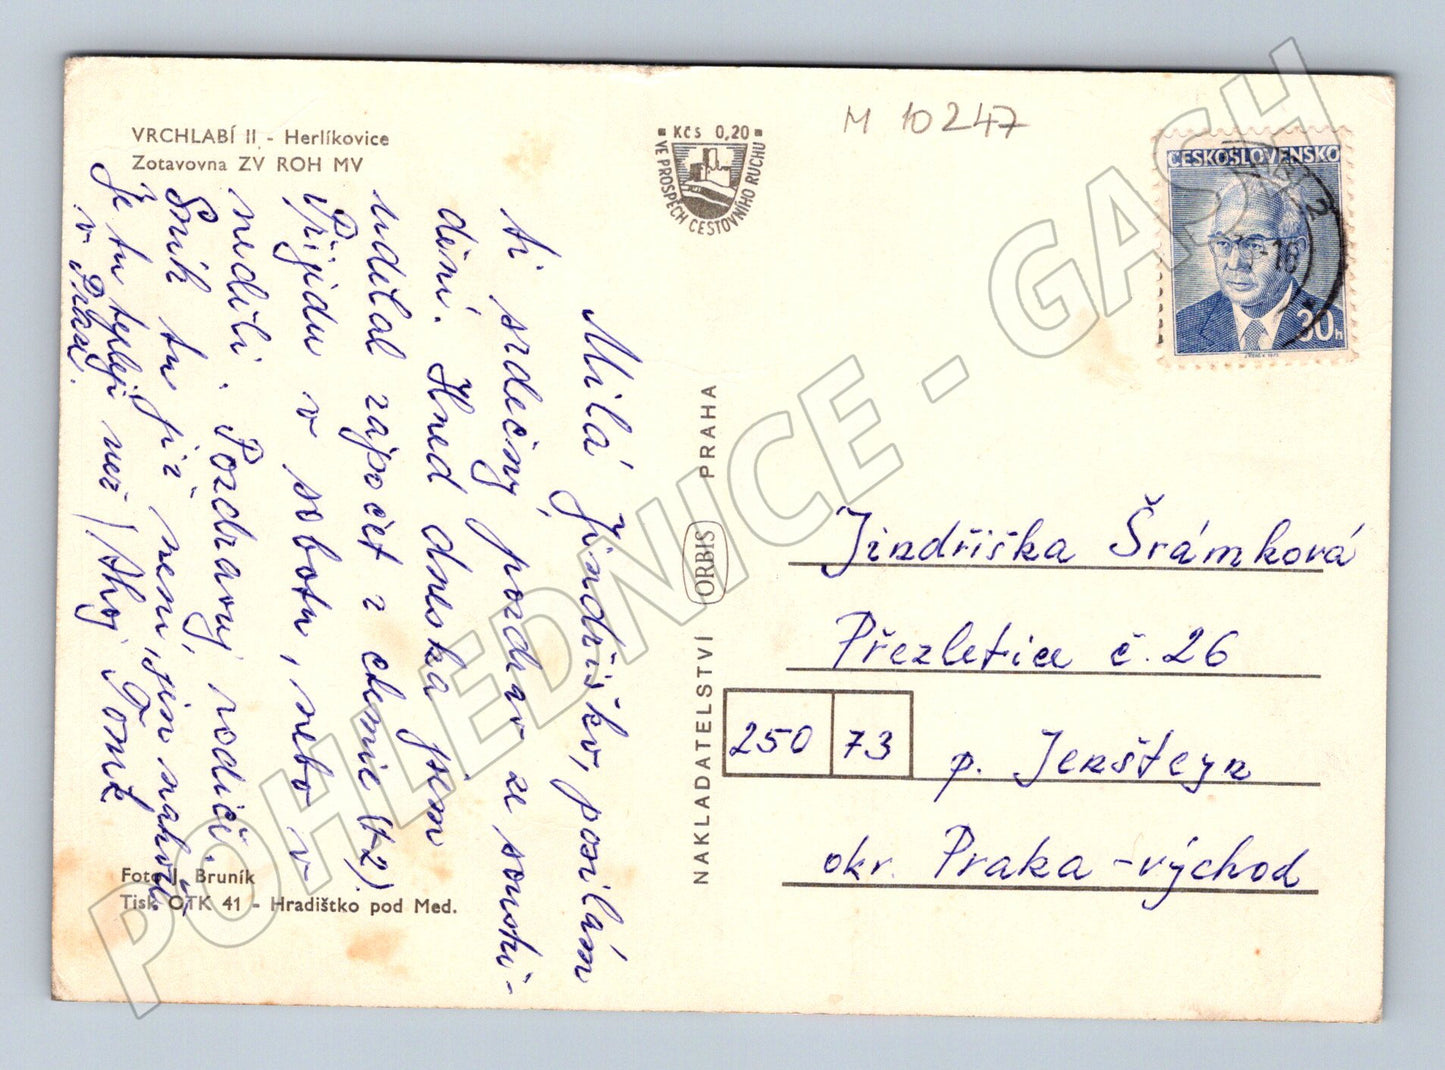 VRCHLABÍ II - Herlíkovice
Zotavovna ZV ROH MV
Milá Jindřiško, posílám
ti srdečný pozdrav ze soustře-
dění. Hned dneska jsem
udělal zápočet z chemie (+2).
Přijedu v sobotu, nebo v
neděli. Pozdravuj rodiče.
Sníh tu již není, jen nahoře,
Je tu tepleji než
v Praze.
Ahoj Tomáš
Foto J. Bruník
Tisk ČTK 41 - Hradištko pod Med.
Kčs 0,20
VE PROSPĚCH CESTOVNÍHO RUCHU
NAKLADATELSTVÍ ORBIS PRAHA
M 10247
ČESKOSLOVENSKO
30h
Jindřiška Šrámková
Přezletice č. 26
250 73
p. Jenštejn
okr. Praha - východ
POHLEDNICE - GASH